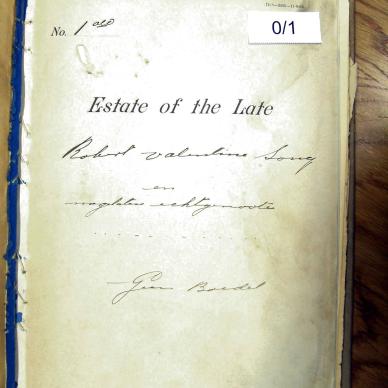 0/1
No. 1
Estate of the Late
Robert Valentine Song
en
nagelaten echtgenoote
Geen Boedel